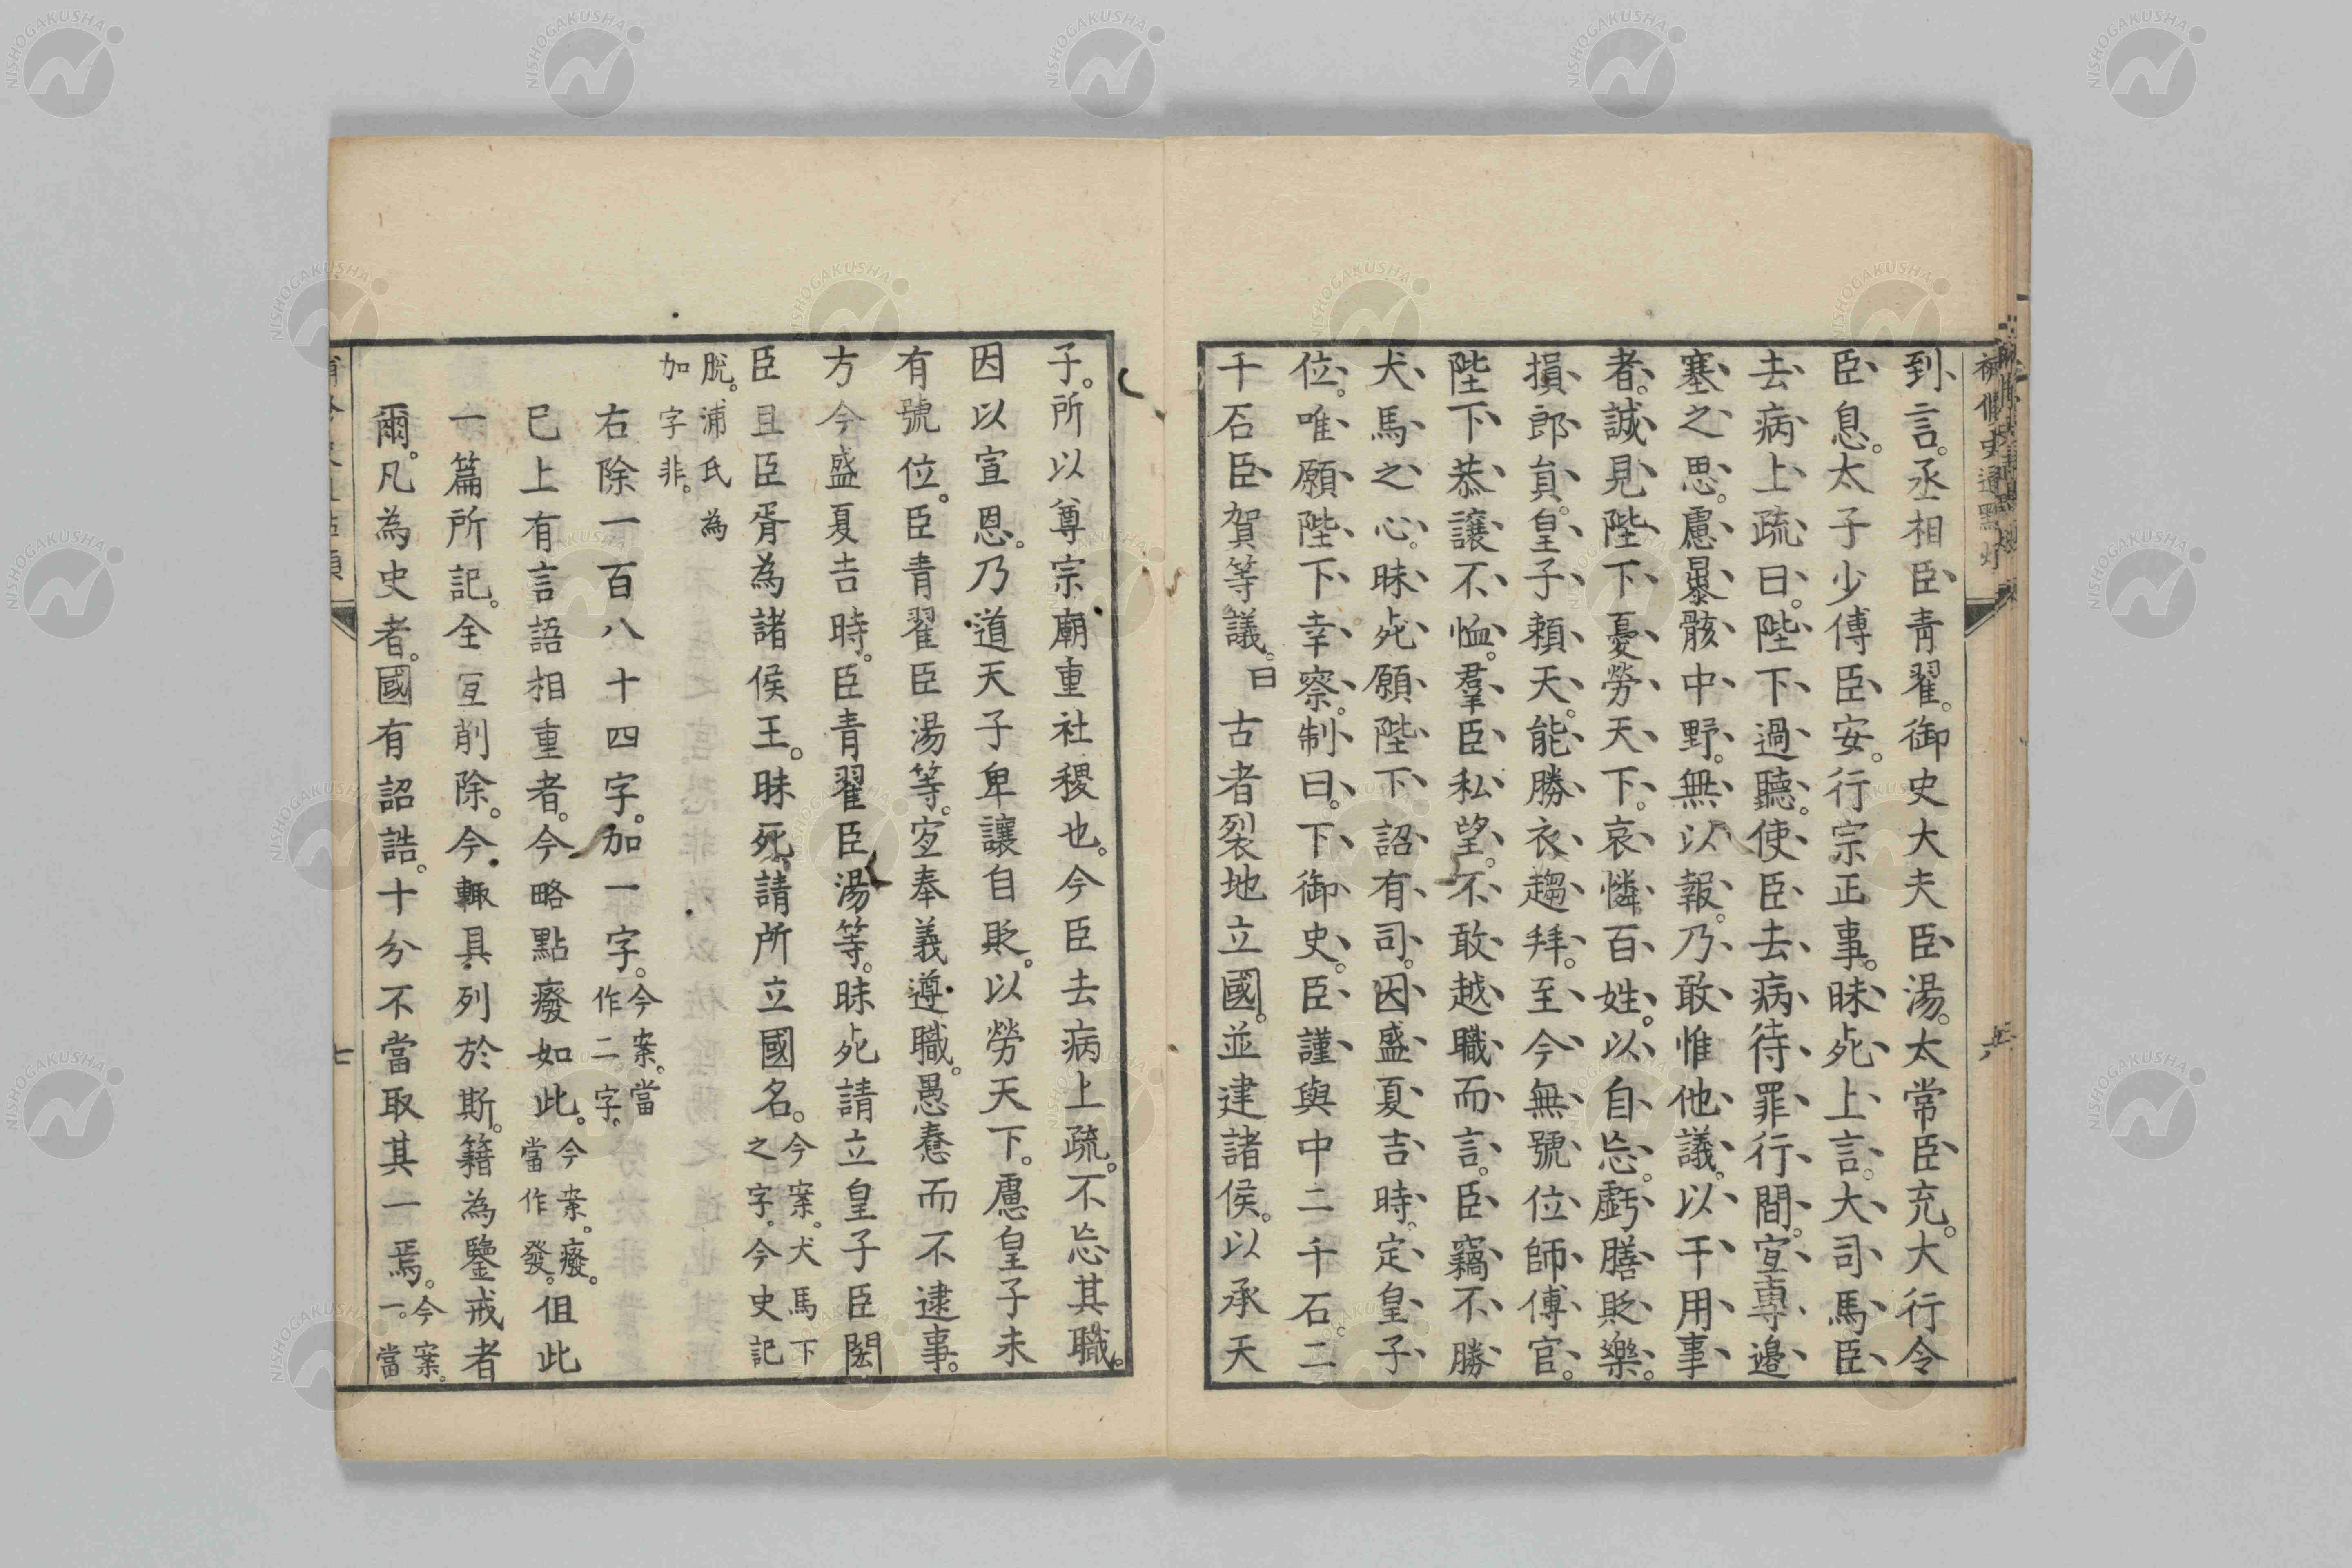 到言。丞相臣青翟。御史大夫臣湯。太常臣充。大行令
臣息。太子少傅臣安。行宗正事。昧死上言。大司馬臣
去病上疏曰。陛下過聽。使臣去病待罪行間。宜專邉
塞之思。慮暴骸中野。無以報。乃敢惟他議。以干用事
者。誠見陛下憂勞天下。哀憐百姓。以自忘。虧膳貶樂。
損郎貟。皇子頼天。能勝衣趨拜。至今無號位師傅官。
陛下恭讓不恤。羣臣私望。不敢越職而言。臣竊不勝
犬馬之心。昧死願陛下詔有司。因盛夏吉時。定皇子
位。唯願陛下幸察。制曰。下御史。臣謹與中二千石。二
千石臣賀等議。曰古者裂地立國。並建諸侯。以承天
子。所以尊宗廟重社稷也。今臣去病上疏。不忘其職。
因以宣恩。乃道天子卑讓自貶。以勞天下。慮皇子未
有號位。臣青翟臣湯等。宜奉義遵職。愚惷而不逮事。
方今盛夏吉時。臣青翟臣湯等。昧死請立皇子臣閎
臣且臣胥為諸侯王。昧死請所立國名。今案。犬馬下
之字。今史記
脫。浦氏為
加字非。
右除一百八十四字。加一字。今案。當
作二字。
已上有言語相重者。今略點癈如此。今案。癈。
當作發。但此
一篇所記。全宜削除。今輒具列於斯。籍為鑒戒者
爾。凡為史者。國有詔誥。十分不當取其一焉。今案。
一。當
七
NISHOGAKUSHA